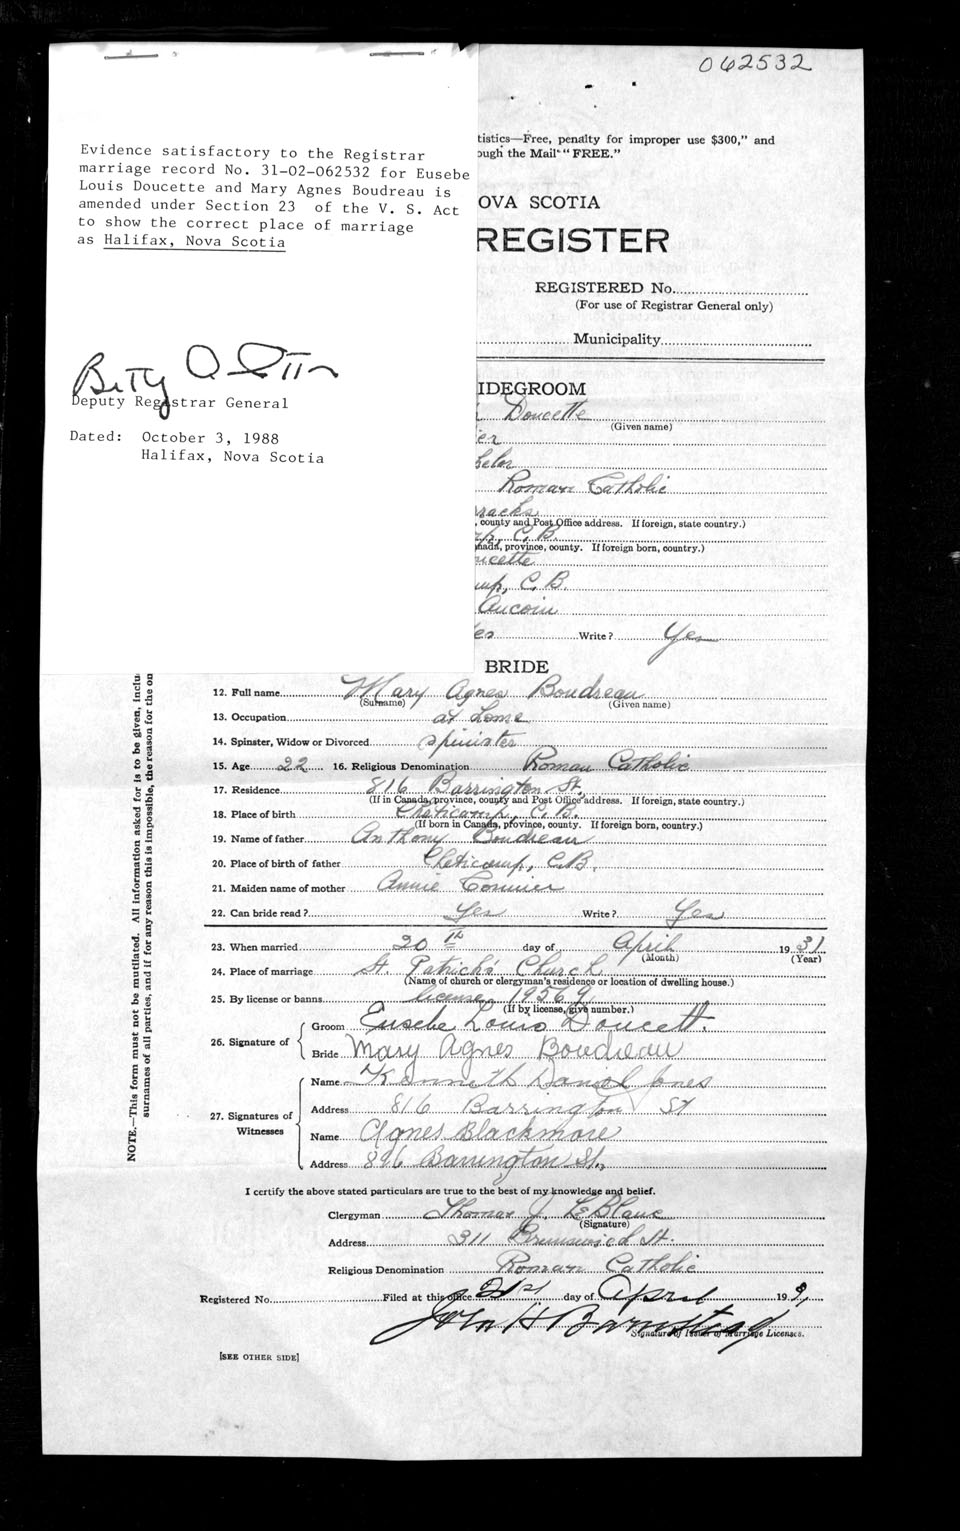 062532
Evidence satisfactory to the Registrar
marriage record No. 31-02-062532 for Eusebe
Louis Doucette and Mary Agnes Boudreau is
amended under Section 23 of the V. S. Act
to show the correct place of marriage
as Halifax, Nova Scotia
Deputy Registrar General
Dated: October 3, 1988
Halifax, Nova Scotia
tistics—Free, penalty for improper use $300," and
ough the Mail "FREE."
OVA SCOTIA
REGISTER
REGISTERED No.
(For use of Registrar General only)
Municipality
IDEGROOM
Doucette
(Given name)
er
helor
Roman Catholic
rracks
, county and Post Office address. If foreign, state country.)
p, C.B.
nada, province, county. If foreign born, country.)
ucette
mp, C.B.
Aucoin
es Write? Yes
BRIDE
12. Full name Mary Agnes Boudreau
(Surname) (Given name)
13. Occupation at home
14. Spinster, Widow or Divorced spinster
15. Age 22 16. Religious Denomination Roman Catholic
17. Residence 816 Barrington St.
(If in Canada, province, county and Post Office address. If foreign, state country.)
18. Place of birth Cheticamp, C.B.
(If born in Canada, province, county. If foreign born, country.)
19. Name of father Anthony Boudreau
20. Place of birth of father Cheticamp, C.B.
21. Maiden name of mother Annie Cormier
22. Can bride read? Yes Write? Yes
23. When married 20th day of April 1931
(Month) (Year)
24. Place of marriage St. Patrick's Church
(Name of church or clergyman's residence or location of dwelling house.)
25. By license or banns license 19569
(If by license, give number.)
26. Signature of
Groom Eusebe Louis Doucett.
Bride Mary Agnes Boudreau
27. Signatures of Witnesses
Name Kenneth Daniel Jones
Address 816 Barrington St
Name Agnes Blackmore
Address 896 Barrington St.,
I certify the above stated particulars are true to the best of my knowledge and belief.
Clergyman Thomas J. LeBlanc
(Signature)
Address 311 Brunswick St.
Religious Denomination Roman Catholic
Registered No. Filed at this office 21st day of April 193
John H Barnstead
Signature of Issuer of Marriage Licenses.
[SEE OTHER SIDE]
NOTE.—This form must not be mutilated. All information asked for is to be given, inclu
surnames of all parties, and if for any reason this is impossible, the reason for the on